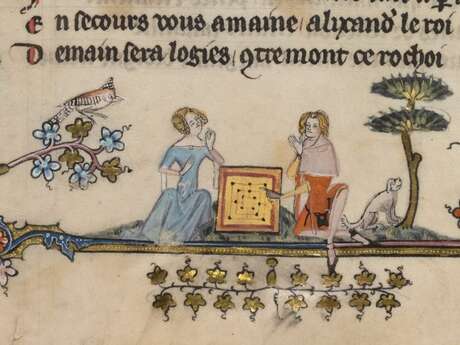 E n secours vous amaine / alixand' le roi
D emain sera logies / q̄tremont ce rochoi